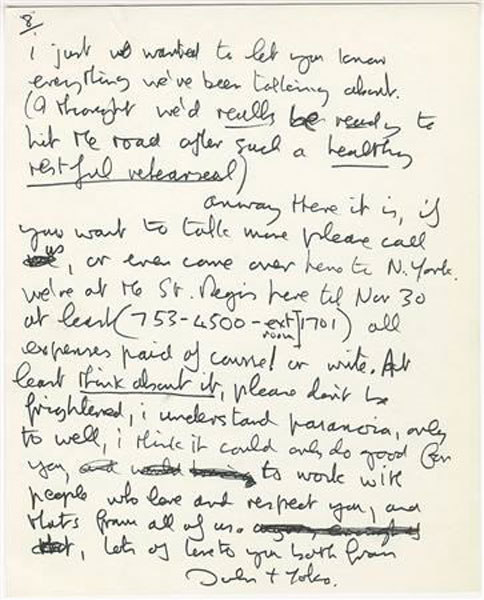 8
i just wanted to let you know
everything we've been talking about.
(I thought we'd really be ready to
hit the road after such a healthy
restful rehearseal)
anyway there it is, if
you want to talk more please call
us, or even come over here to N. York.
we're at the St. Regis here til Nov 30
at least (753-4500-ext room 1701) all
expenses paid of course! or write. At
least think about it, please don't be
frightened, i understand paranoia, only
to well, i think it could only do good for
you, to work with
people who love and respect you, and
thats from all of us.
lots of love to you both from
John + Yoko.